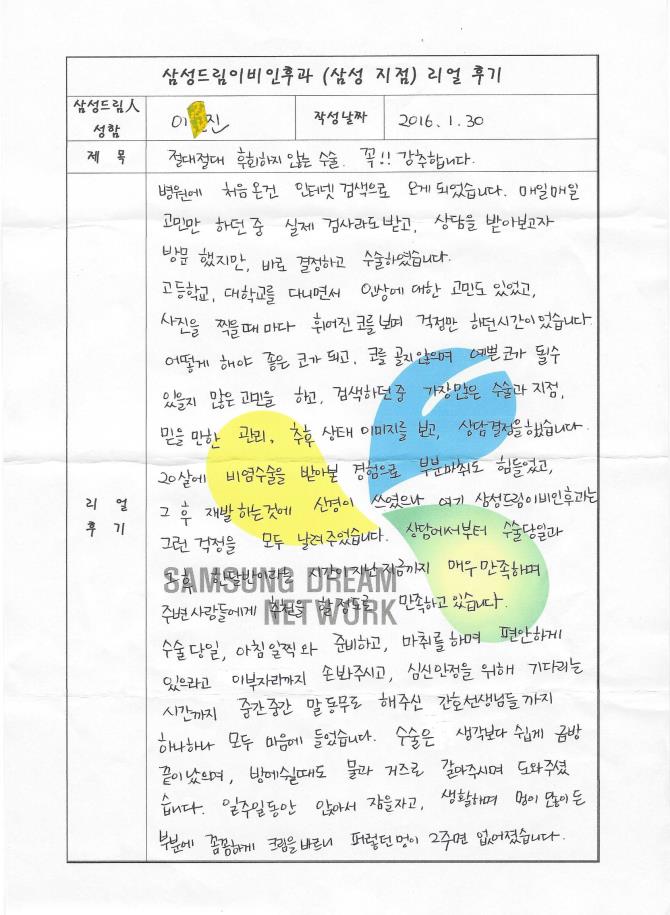 삼성드림이비인후과 (삼성 지점) 리얼 후기
삼성드림人 성함
이 진
작성날짜
2016. 1. 30
제 목
절대절대 후회하지 않는 수술. 꼭!! 강추합니다.
리 얼
후 기
병원에 처음 온건 인터넷 검색으로 오게 되었습니다. 매일매일
고민만 하던 중 실제 검사라도 받고, 상담을 받아보고자
방문 했지만, 바로 결정하고 수술하였습니다.
고등학교, 대학교를 다니면서 인상에 대한 고민도 있었고,
사진을 찍을때 마다 휘어진 코를 보며 걱정만 하던시간이었습니다.
어떻게 해야 좋은 코가 되고, 코를 골지않으며 예쁜코가 될수
있을지 많은 고민을 하고, 검색하던중 가장많은 수술과 지점,
믿을 만한 관리, 추후 상태 이미지를 보고, 상담결정을했습니다.
20살에 비염수술을 받아본 경험으로 부분마취도 힘들었고,
그 후 재발 하는것에 신경이 쓰였으나 여기 삼성드림이비인후과는
그런 걱정을 모두 날려주었습니다. 상담에서부터 수술당일과
그 후 한달반이라는 시간이 지난 지금까지 매우 만족하며
SAMSUNG DREAM
NETWORK
주변 사람들에게 추천을 할 정도로 만족하고 있습니다.
수술 당일, 아침 일찍 와 준비하고, 마취를 하며 편안하게
있으라고 이부자리까지 손봐주시고, 심신안정을 위해 기다리는
시간까지 중간중간 말동무로 해주신 간호선생님들 까지
하나하나 모두 마음에 들었습니다. 수술은 생각보다 쉽게 금방
끝이났으며, 방에쉴때도 물과 거즈로 갈아주시며 도와주셨
습니다. 일주일동안 앉아서 잠을자고, 생활하며 멍이 많이 든
부분에 꼼꼼하게 크림을바르니 퍼렇던멍이 2주면 없어졌습니다.